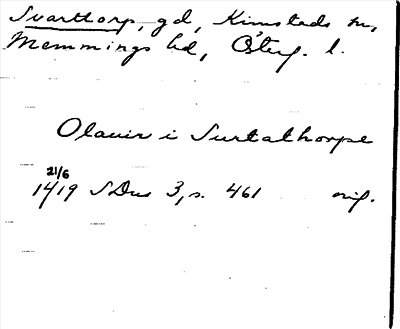 Svarttorp, gd, Kimstads sn,
Memmings hd, Österg. l.
Olauir i Surtathorpe
21/6
1419 SDns 3, s. 461 orig.